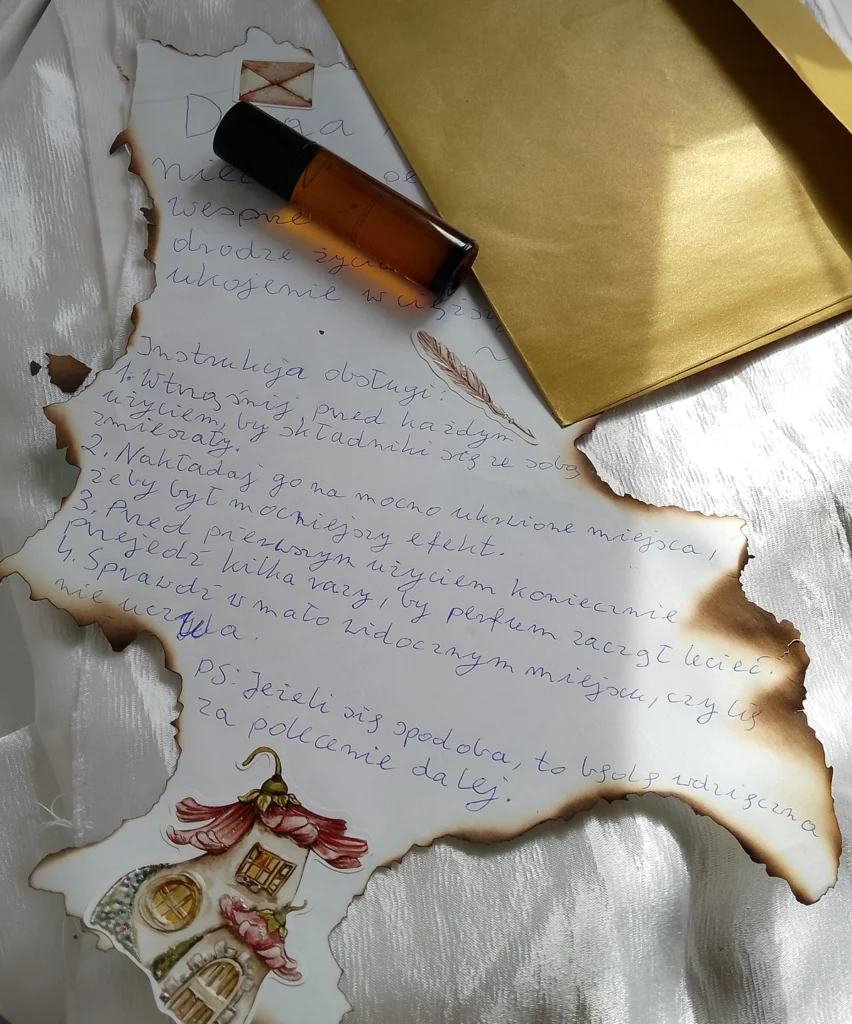 drodze
ukojenie w
Instrukcja obsługi:
1. Wtrząśnij, przed każdym
użyciem, by składniki się ze sobą
zmieszały.
2. Nakładaj go na mocno ukrwione miejsca,
żeby był mocniejszy efekt.
3. Przed pierwszym użyciem koniecznie
przejedź kilka razy, by perfum zaczął lecieć.
4. Sprawdź w mało widocznym miejscu, czy Cię
nie uczula.
PS: Jeżeli się spodoba, to będę wdzięczna
za polecenie dalej.